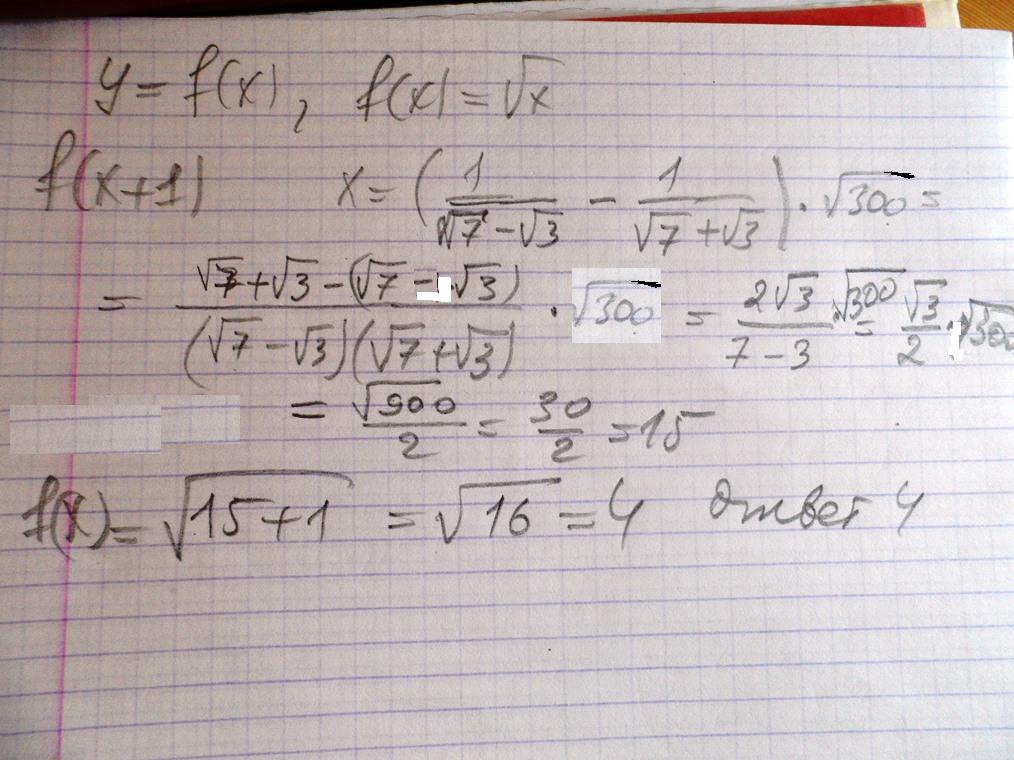 y = f(x), f(x) = √x
f(x+1) x = (1/(√7 − √3) − 1/(√7 + √3)) · √300 =
= (√7 + √3 − (√7 − √3))/((√7 − √3)(√7 + √3)) · √300 = 2√3/(7 − 3) · √300 = √3/2 · √300
= √900/2 = 30/2 = 15
f(x) = √(15+1) = √16 = 4 Ответ 4